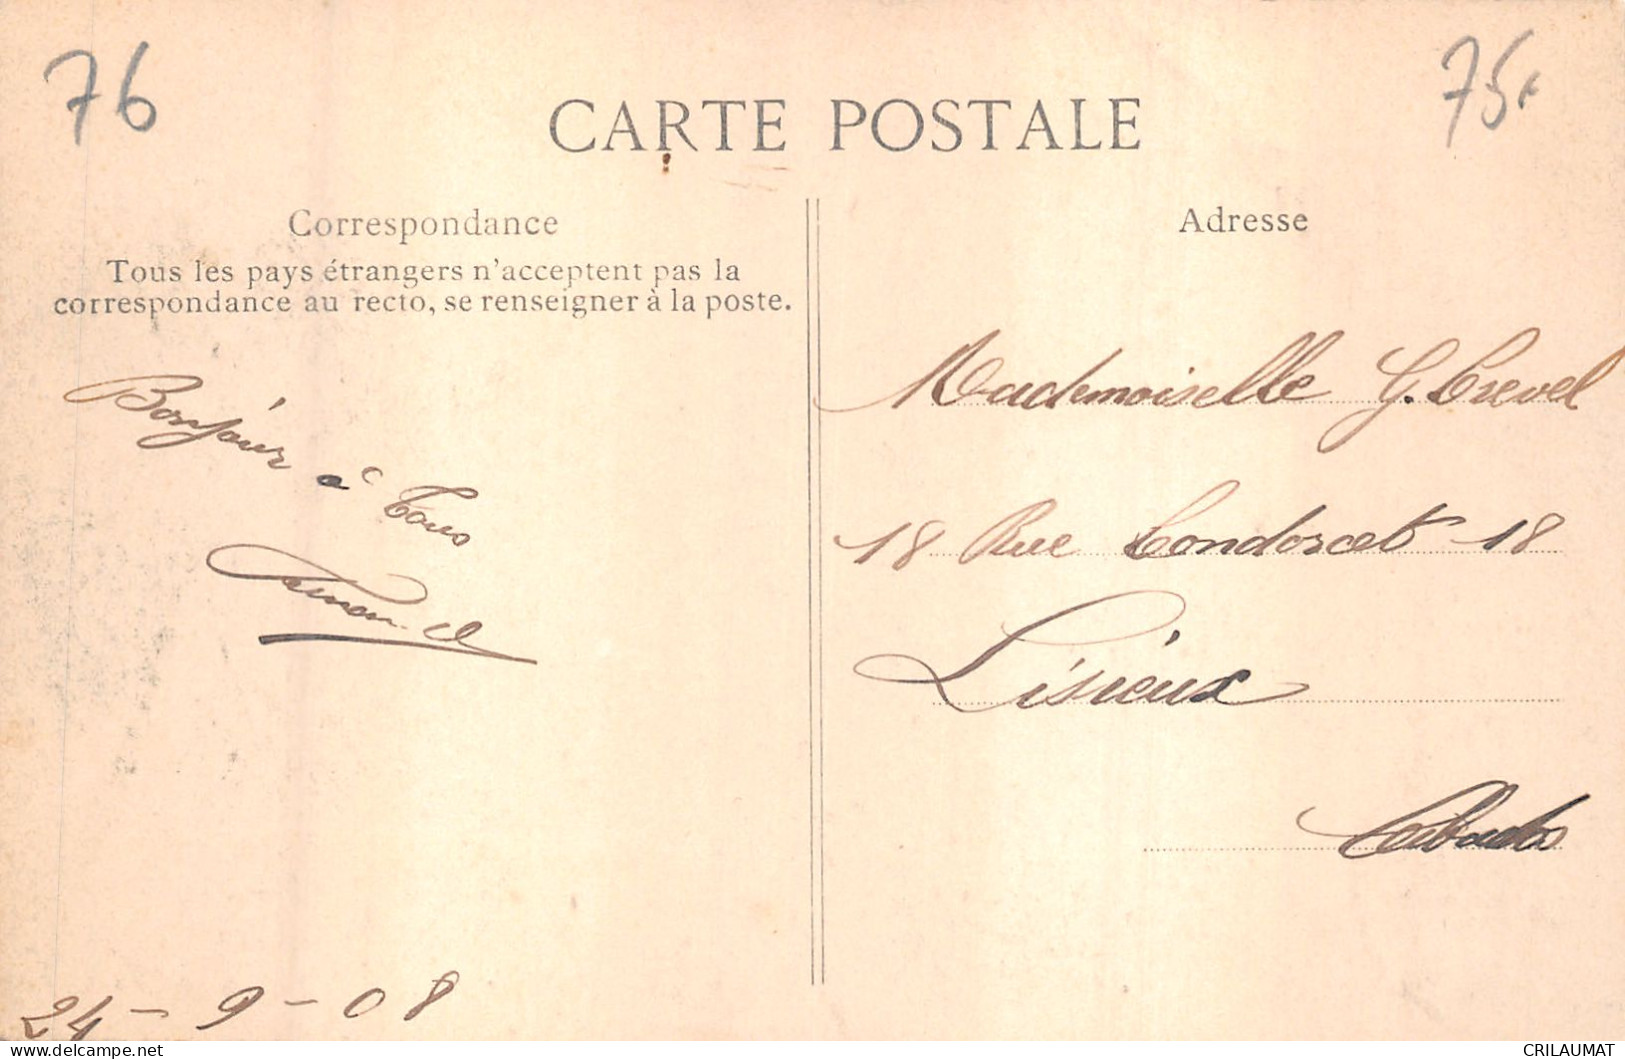 76
75F
CARTE POSTALE
Correspondance
Tous les pays étrangers n'acceptent pas la
correspondance au recto, se renseigner à la poste.
Bonjour à Tous
24 - 9 - 08
Adresse
Mademoiselle G. Crevel
18 Rue Condorcet 18
Lisieux
Calvados
CRILAUMAT